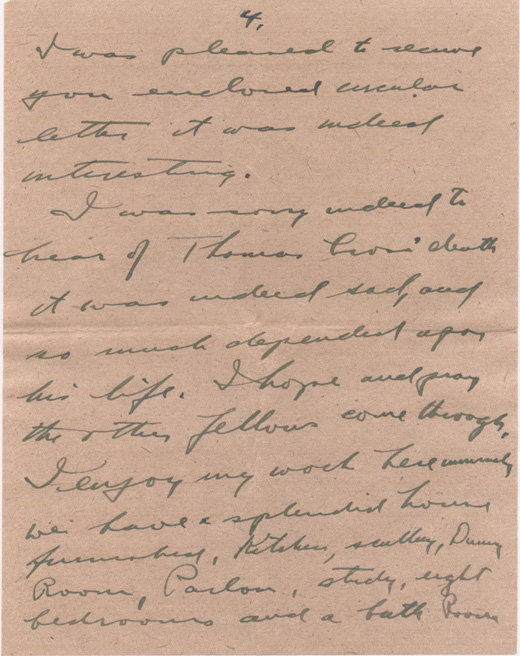 4.
I was pleased to receive
your enclosed circular
letter it was indeed
interesting.
I was sorry indeed to
hear of Thomas death
it was indeed sad, and
so much depended upon
his life. I hope and pray
the other fellows come through,
I enjoy my work here immensely
we have a splendid house
furnished, Kitchen, scullery, Dining
Room, Parlor, study, eight
bedrooms and a bath Room